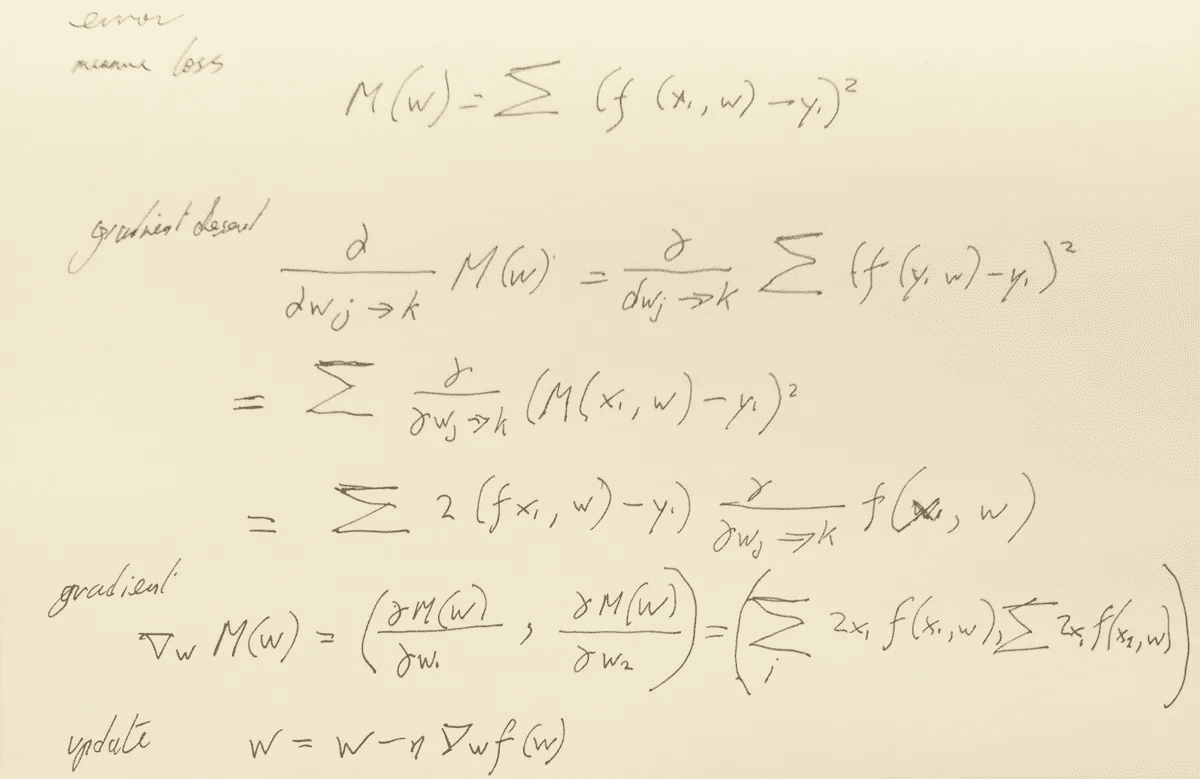 error
measure loss
M(w) = ∑ (f (x₁, w) - y₁)²
gradient descent
∂/∂w j → k M(w) = ∂/dw j → k ∑ (f (y₁ w) - y₁)²
= ∑ ∂/∂w j → k (M(x₁, w) - y₁)²
= ∑ 2 (f x₁, w) - y₁) ∂/∂w j ⇒ k f(x₁, w)
gradient
∇w M(w) = (∂M(w)/∂w₁ , ∂M(w)/∂w₂) = (∑ i 2x₁ f(x₁, w), ∑ 2x₁ f(x₂, w))
update w = w - η ∇w f(w)